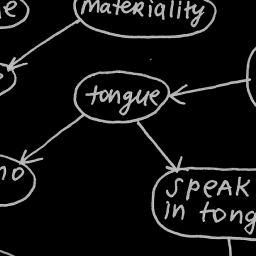 materiality
tongue
speak
in tong
no